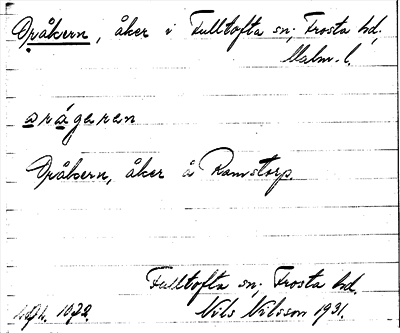 Dråkern, åker i Fulltofta sn, Frosta hd,
Malm. l.
arágeren
Dråkern, åker å Ramstorp.
Fulltofta sn, Frosta hd.
Nils Nilsson 1931.